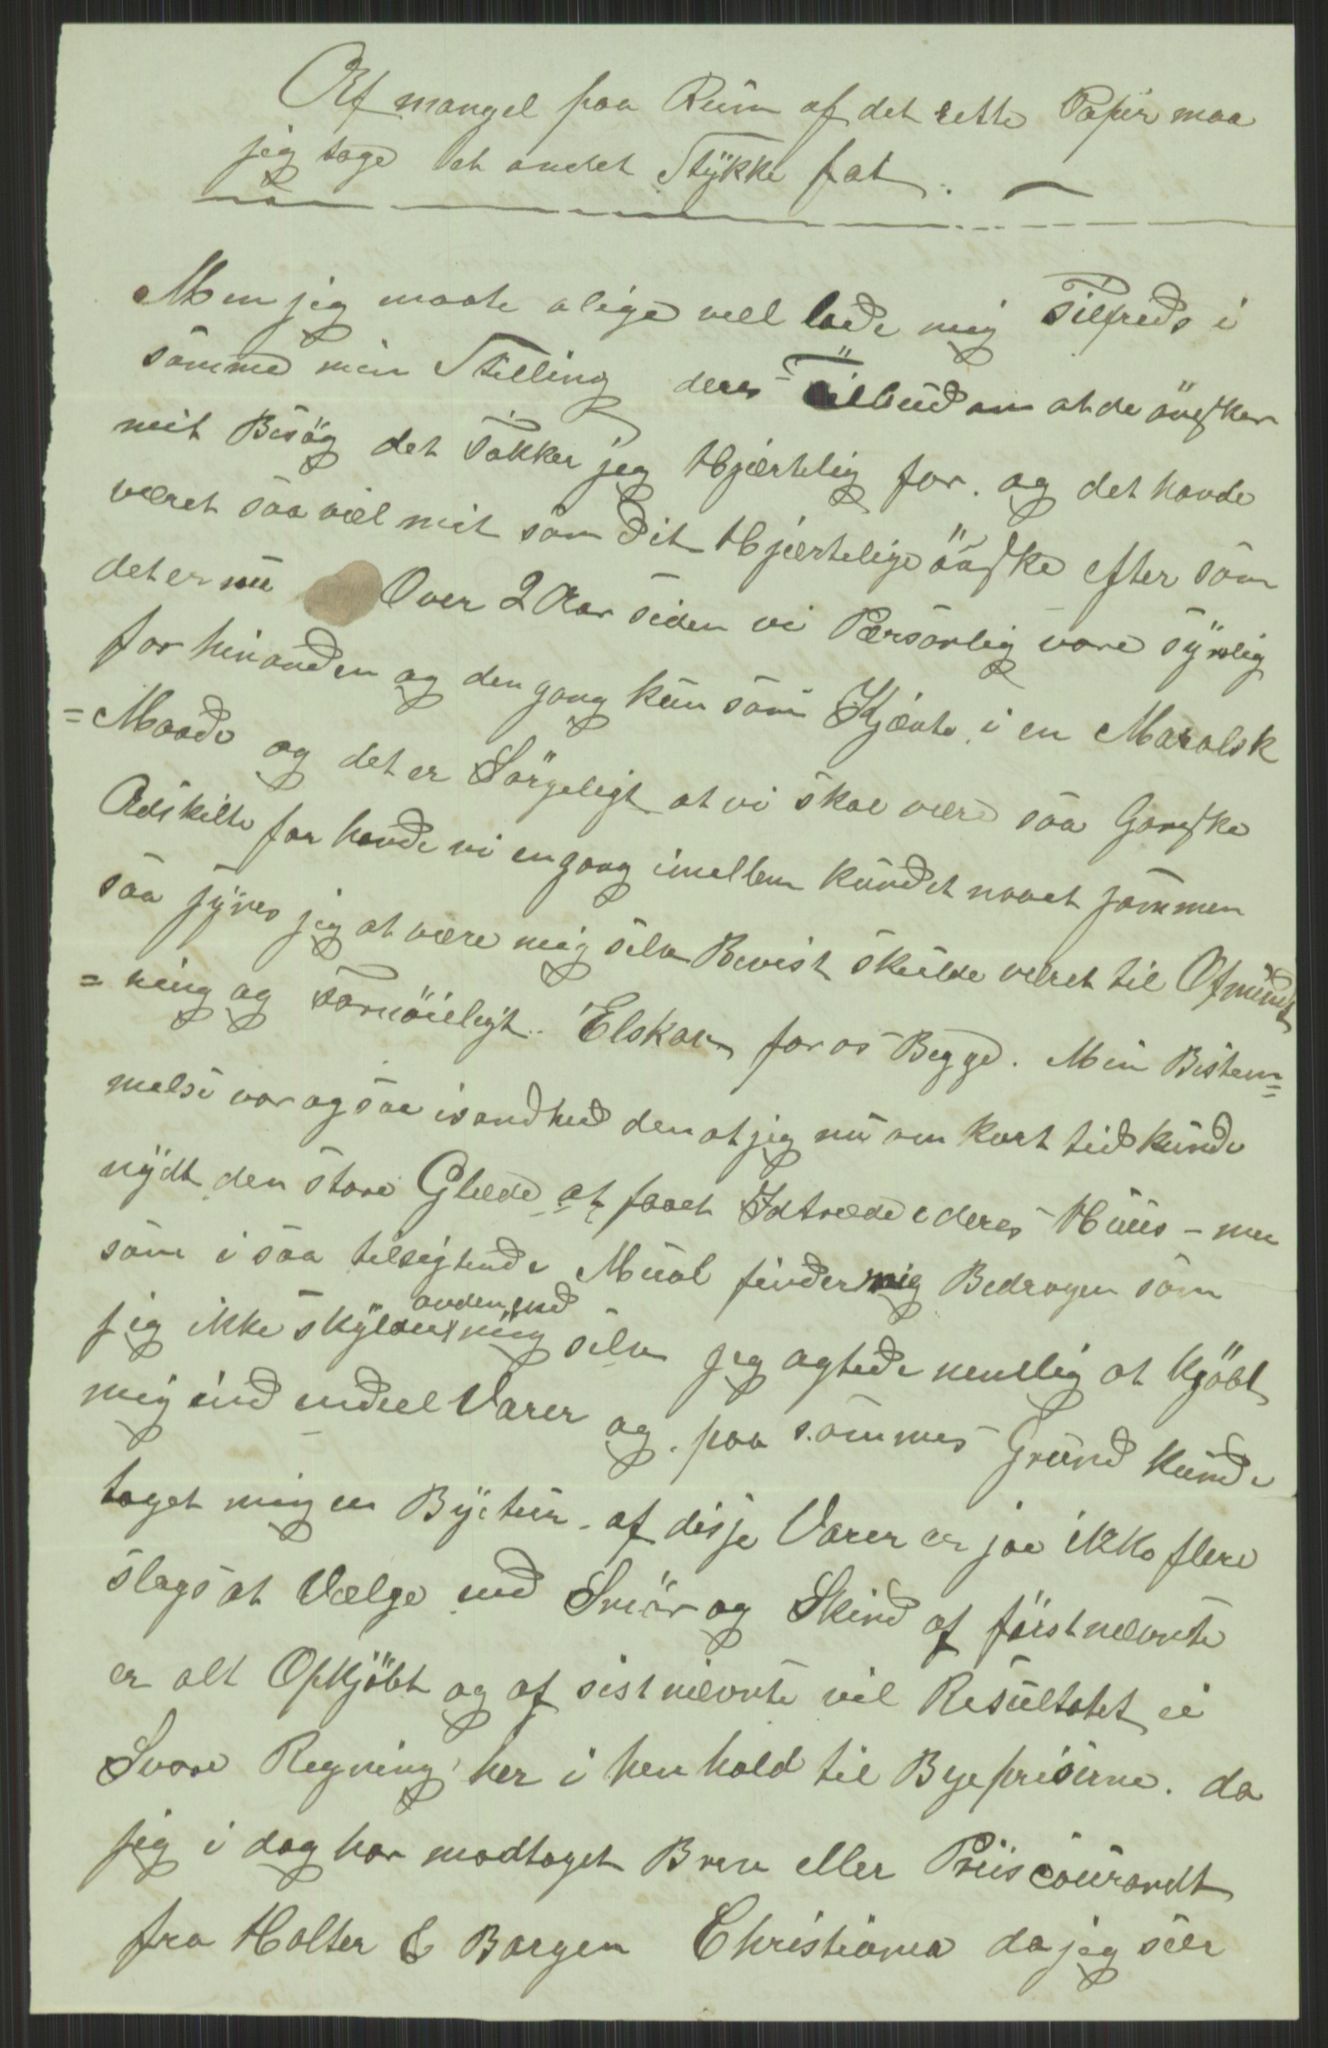 Af mangel paa Rum af det rette Papir maa
jeg tage et andet Stykke fat. —
Men jeg maate alige vell lade mig Tilfreds i
samme min Stilling deres Tilbud om at de önsker
mit Besög det Takker jeg Hjærtelig for. og det havde
været saa vel mit som dit Hjærtelige önske efter som
det er nu Over 2 Aar siden vi Personlig vare synlig
for hinanden og den gang kun som Kjænte i en Maralsk
= Maade og det er Sörgeligt at vi skal være saa Ganske
Adskilte for havde vi en gang imellem kundet naaet sammen
saa synes jeg at være mig selv Bevist skulde været til Opmunt
= ring og Fornöieligt. Elskov for os Begge. Min Bestem=
melse var og saa i sandhed den at jeg nu om kort tid kunde
nydt den store Glæde at faaet Idtræde i deres Huus – men
som i saa tilsigtende Maal finder mig Bedragen som
jeg ikke skylder anden end mig selv jeg agtede nemlig at kjöbt
mig ind endeel Varer og paa sammes Grund kunde
taget mig en Bytuur. af disse Varer er jae ikke flere
slags at Vælge end Smör og Skind af först nævnte
er alt Opkjöbt og af sist nævnte vil Resultatet ei
Svare Regning her i henhold til Byepriserne. da
jeg i dag har modtaget Brev eller Priiscourandt
fra Holter & Borgen Christiania da jeg seer